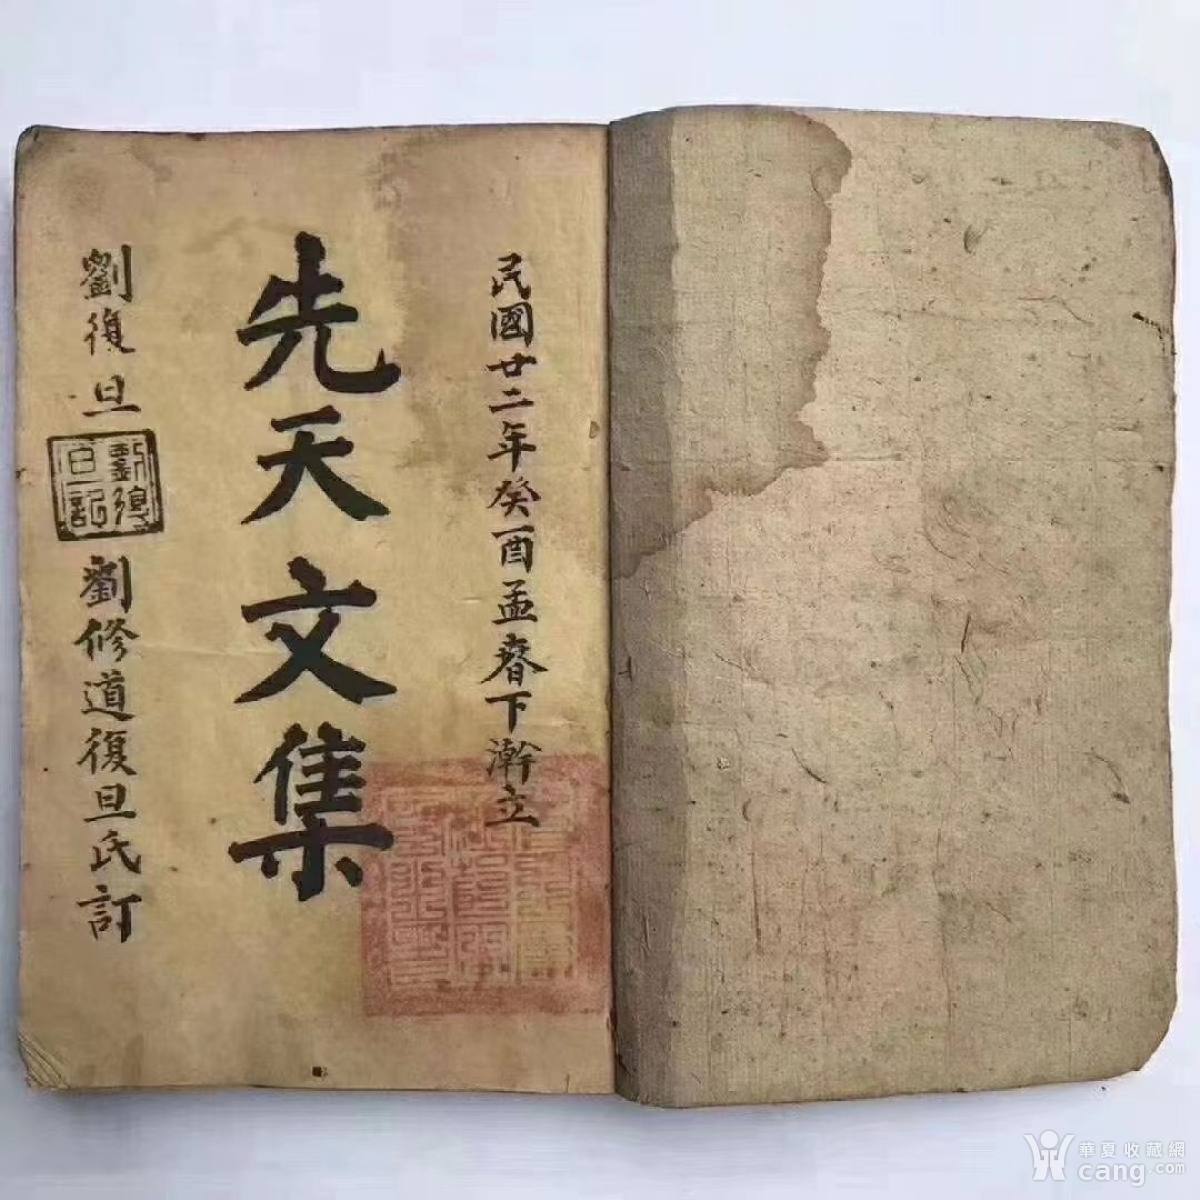 民國廿二年癸酉孟春下澣立
先天文集
劉復旦
劉復旦記
劉修道復旦氏訂
華夏收藏網
cang.com